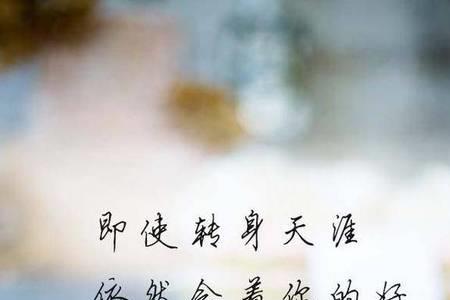 即使转身天涯
依然念着你的好